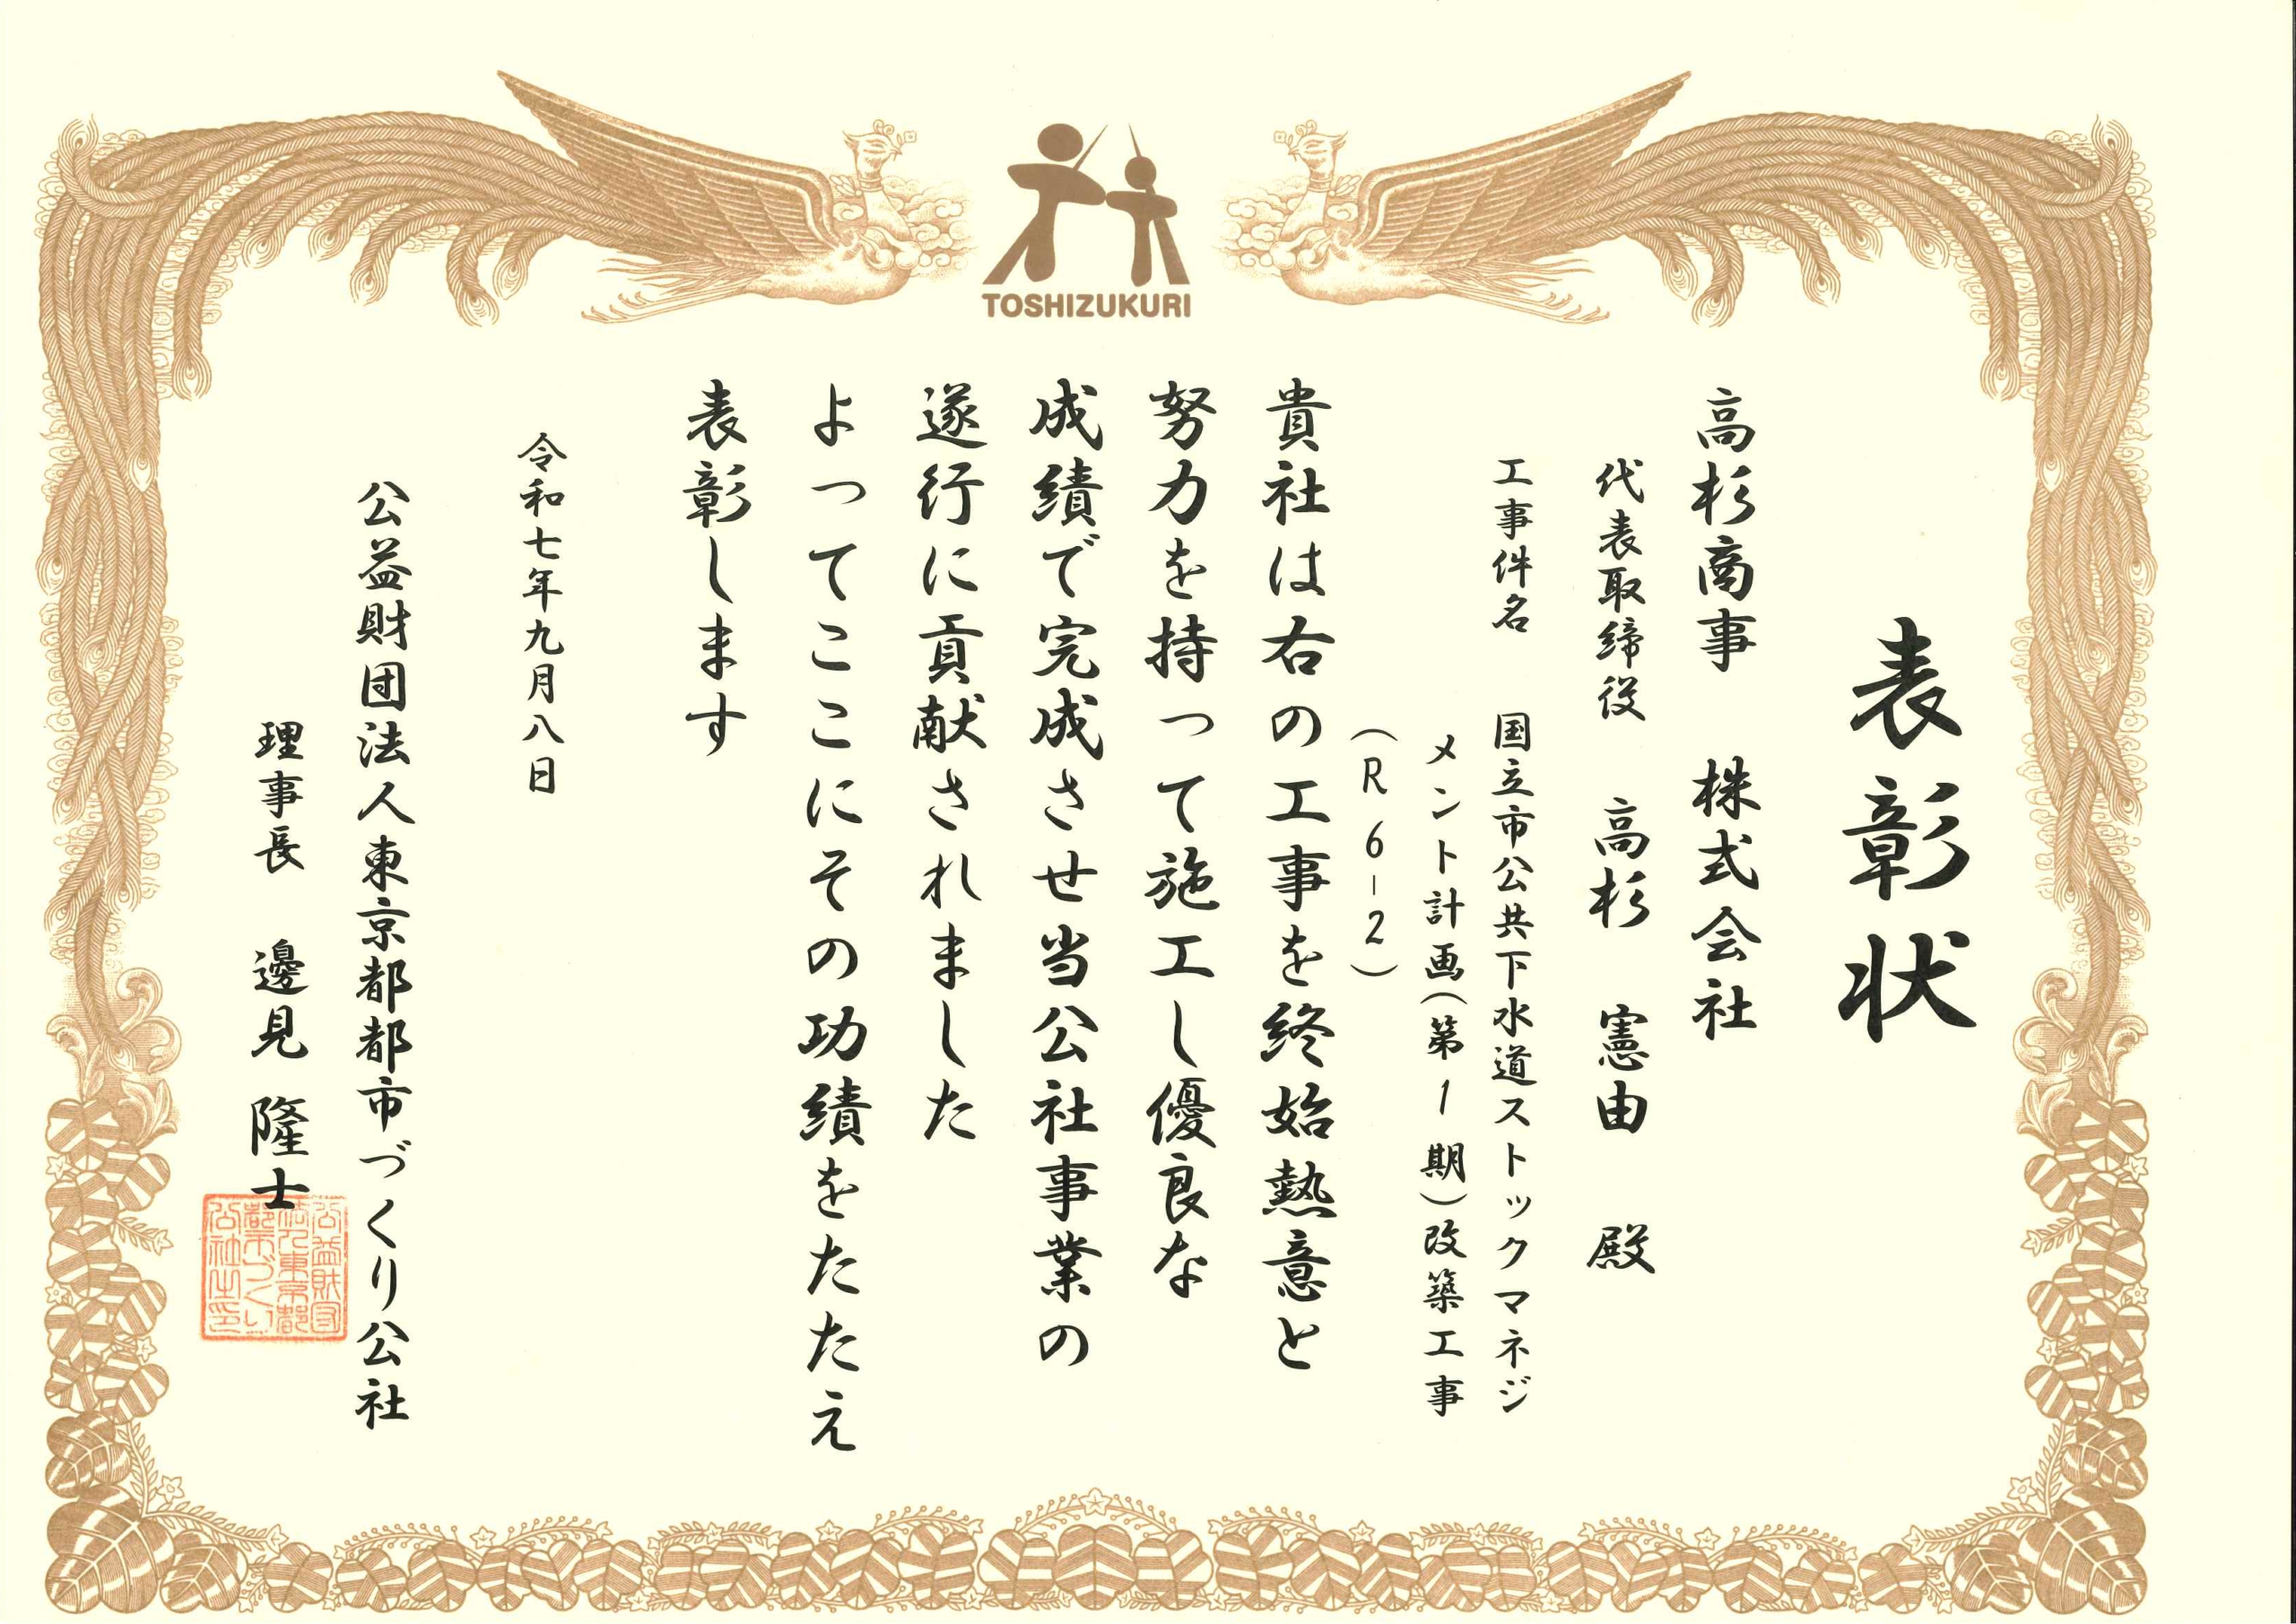 TOSHIZUKURI
表彰状
高杉商事 株式会社
代表取締役 高杉 憲由 殿
工事件名 国立市公共下水道ストックマネジ
メント計画(第1期)改築工事
(R6-2)
貴社は右の工事を終始熱意と
努力を持って施工し優良な
成績で完成させ当公社事業の
遂行に貢献されました
よってここにその功績をたたえ
表彰します
令和七年九月八日
公益財団法人東京都都市づくり公社
理事長 邊見 隆士
公益財団
法人東京都
都市づくり
公社之印